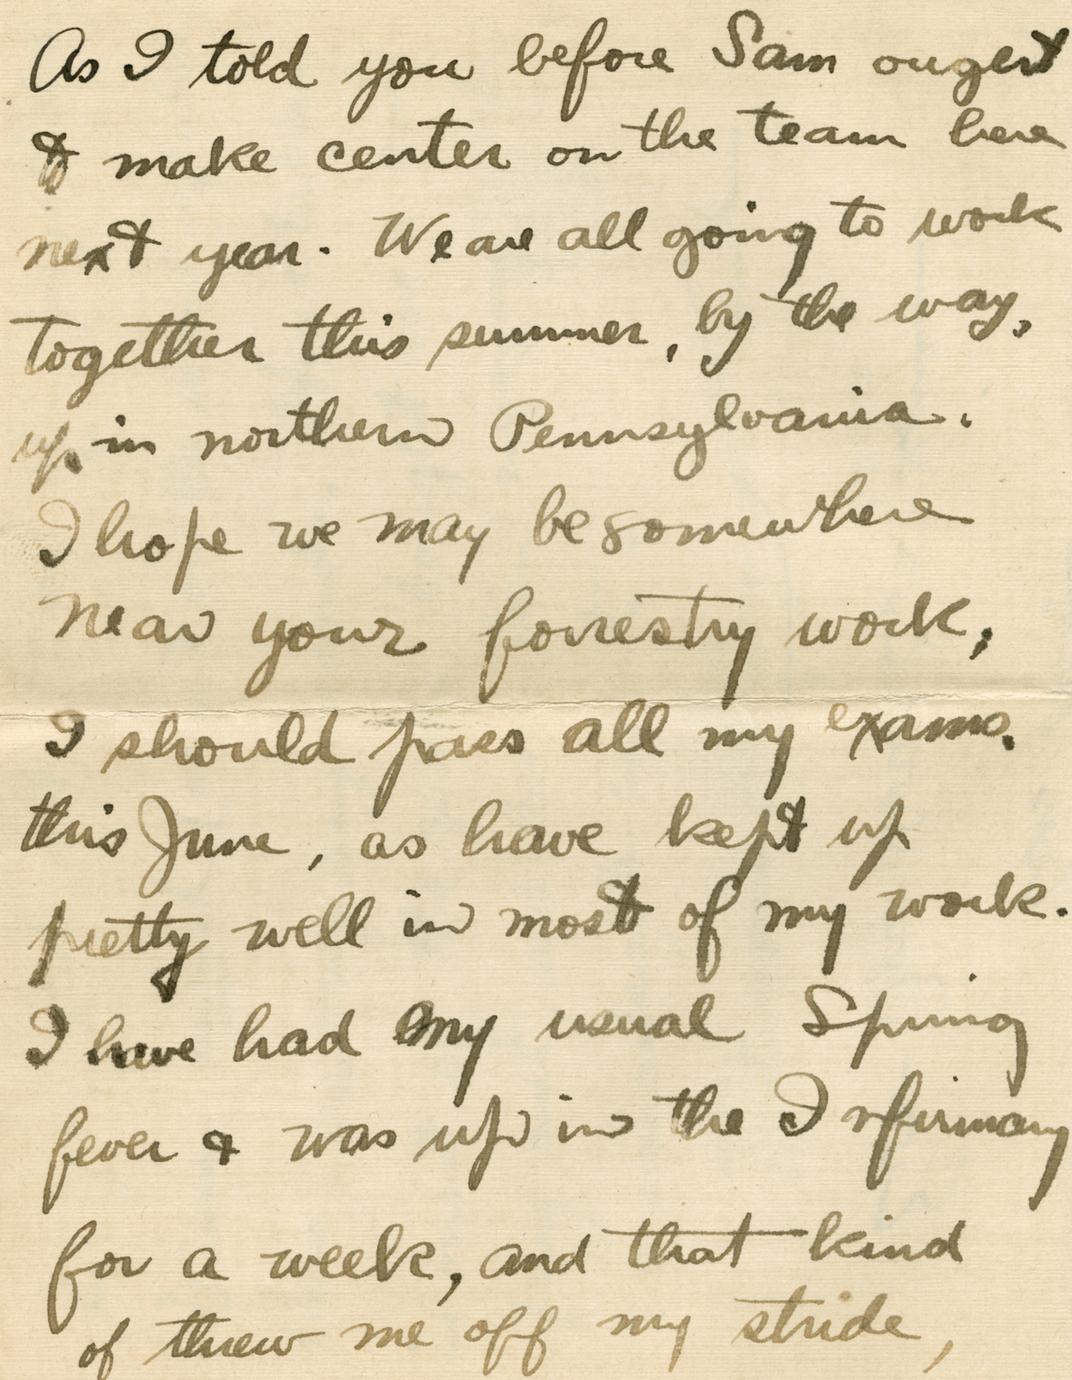 As I told you before Sam ought
to make center on the team here
next year. We are all going to work
together this summer, by the way,
up in northern Pennsylvania.
I hope we may be somewhere
near your forrestry work,
I should pass all my exams.
this June, as have kept up
pretty well in most of my work.
I have had my usual Spring
fever & was up in the Infirmary
for a week, and that kind
of threw me off my stride,